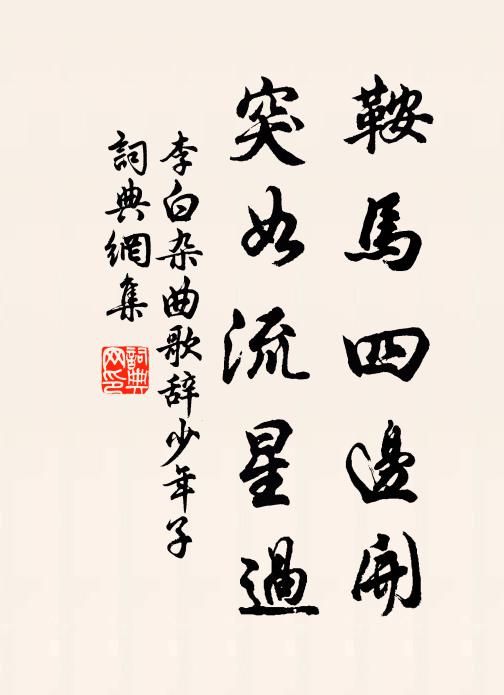 鞍馬四邊開
突如流星過
李白杂曲歌辞少年子
詞典網集
詞典网印